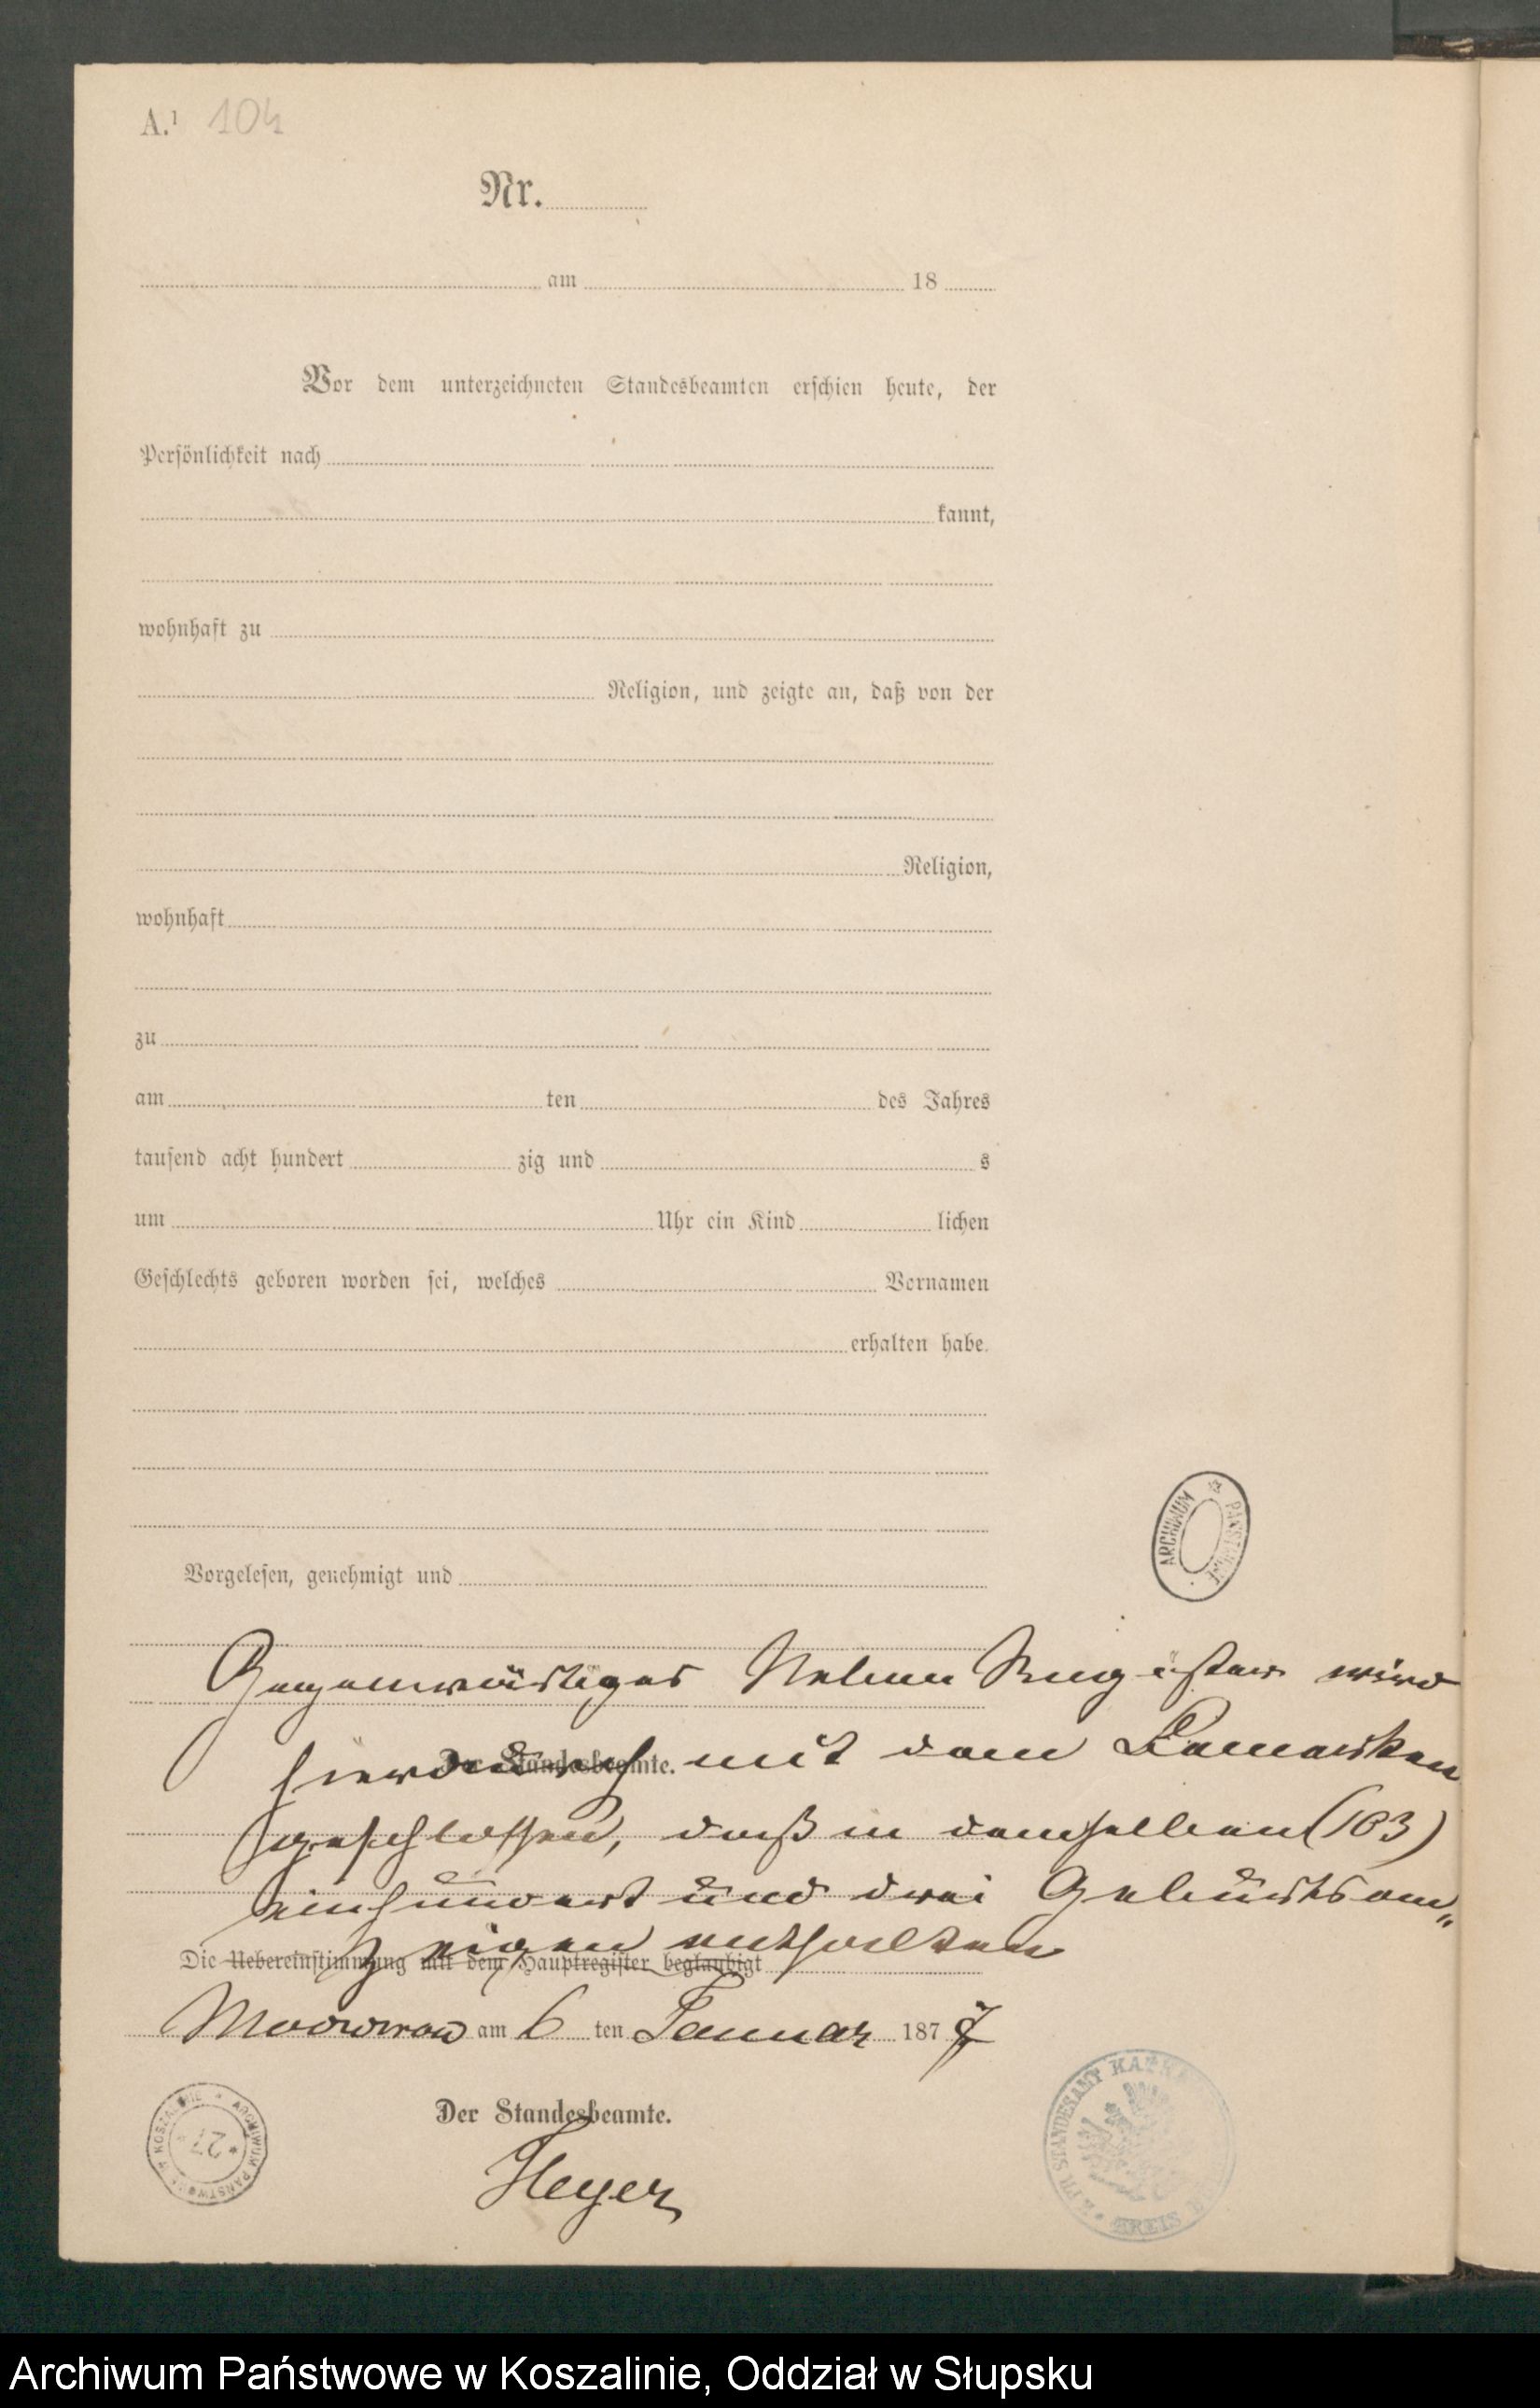 A.¹ 104
Nr.
am 18
Vor dem unterzeichneten Standesbeamten erschien heute, der
Persönlichkeit nach
kannt,
wohnhaft zu
Religion, und zeigte an, daß von der
Religion,
wohnhaft
zu
am ten des Jahres
tausend acht hundert zig und s
um Uhr ein Kind lichen
Geschlechts geboren worden sei, welches Vornamen
erhalten habe.
Vorgelesen, genehmigt und
Gegenwärtiges Neben Register wird
Der Standesbeamte.
hierdurch mit dem Bemerken
geschlossen, daß in demselben (103)
einhundert und drei Geburtsan„
zeigen enthalten
Die Uebereinstimmung mit dem Hauptregister beglaubigt
am 6 ten Januar 1877
Der Standesbeamte.
Heyer
ARCHIWUM PAŃSTWOWE
ARCHIWUM PAŃSTWOWE W KOSZALINIE
27
K. PR. STANDESAMT
KREIS
Archiwum Państwowe w Koszalinie, Oddział w Słupsku